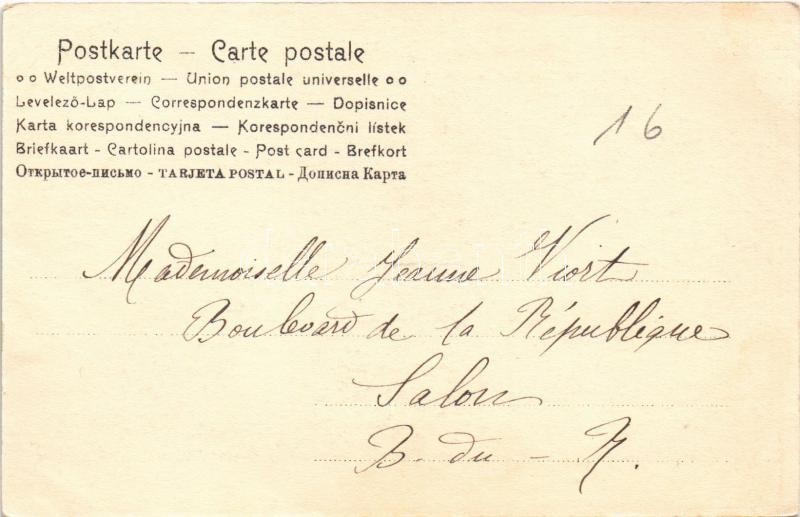 Postkarte — Carte postale
Weltpostverein — Union postale universelle
Levelező-Lap — Correspondenzkarte — Dopisnice
Karta korespondencyjna — Korespondenční lístek
Briefkaart - Cartolina postale - Post card - Brefkort
Открытое-письмо - TARJETA POSTAL - Дописна Карта
16
Mademoiselle Jeanne Viort
Boulevard de la République
Salon
B. du - R.